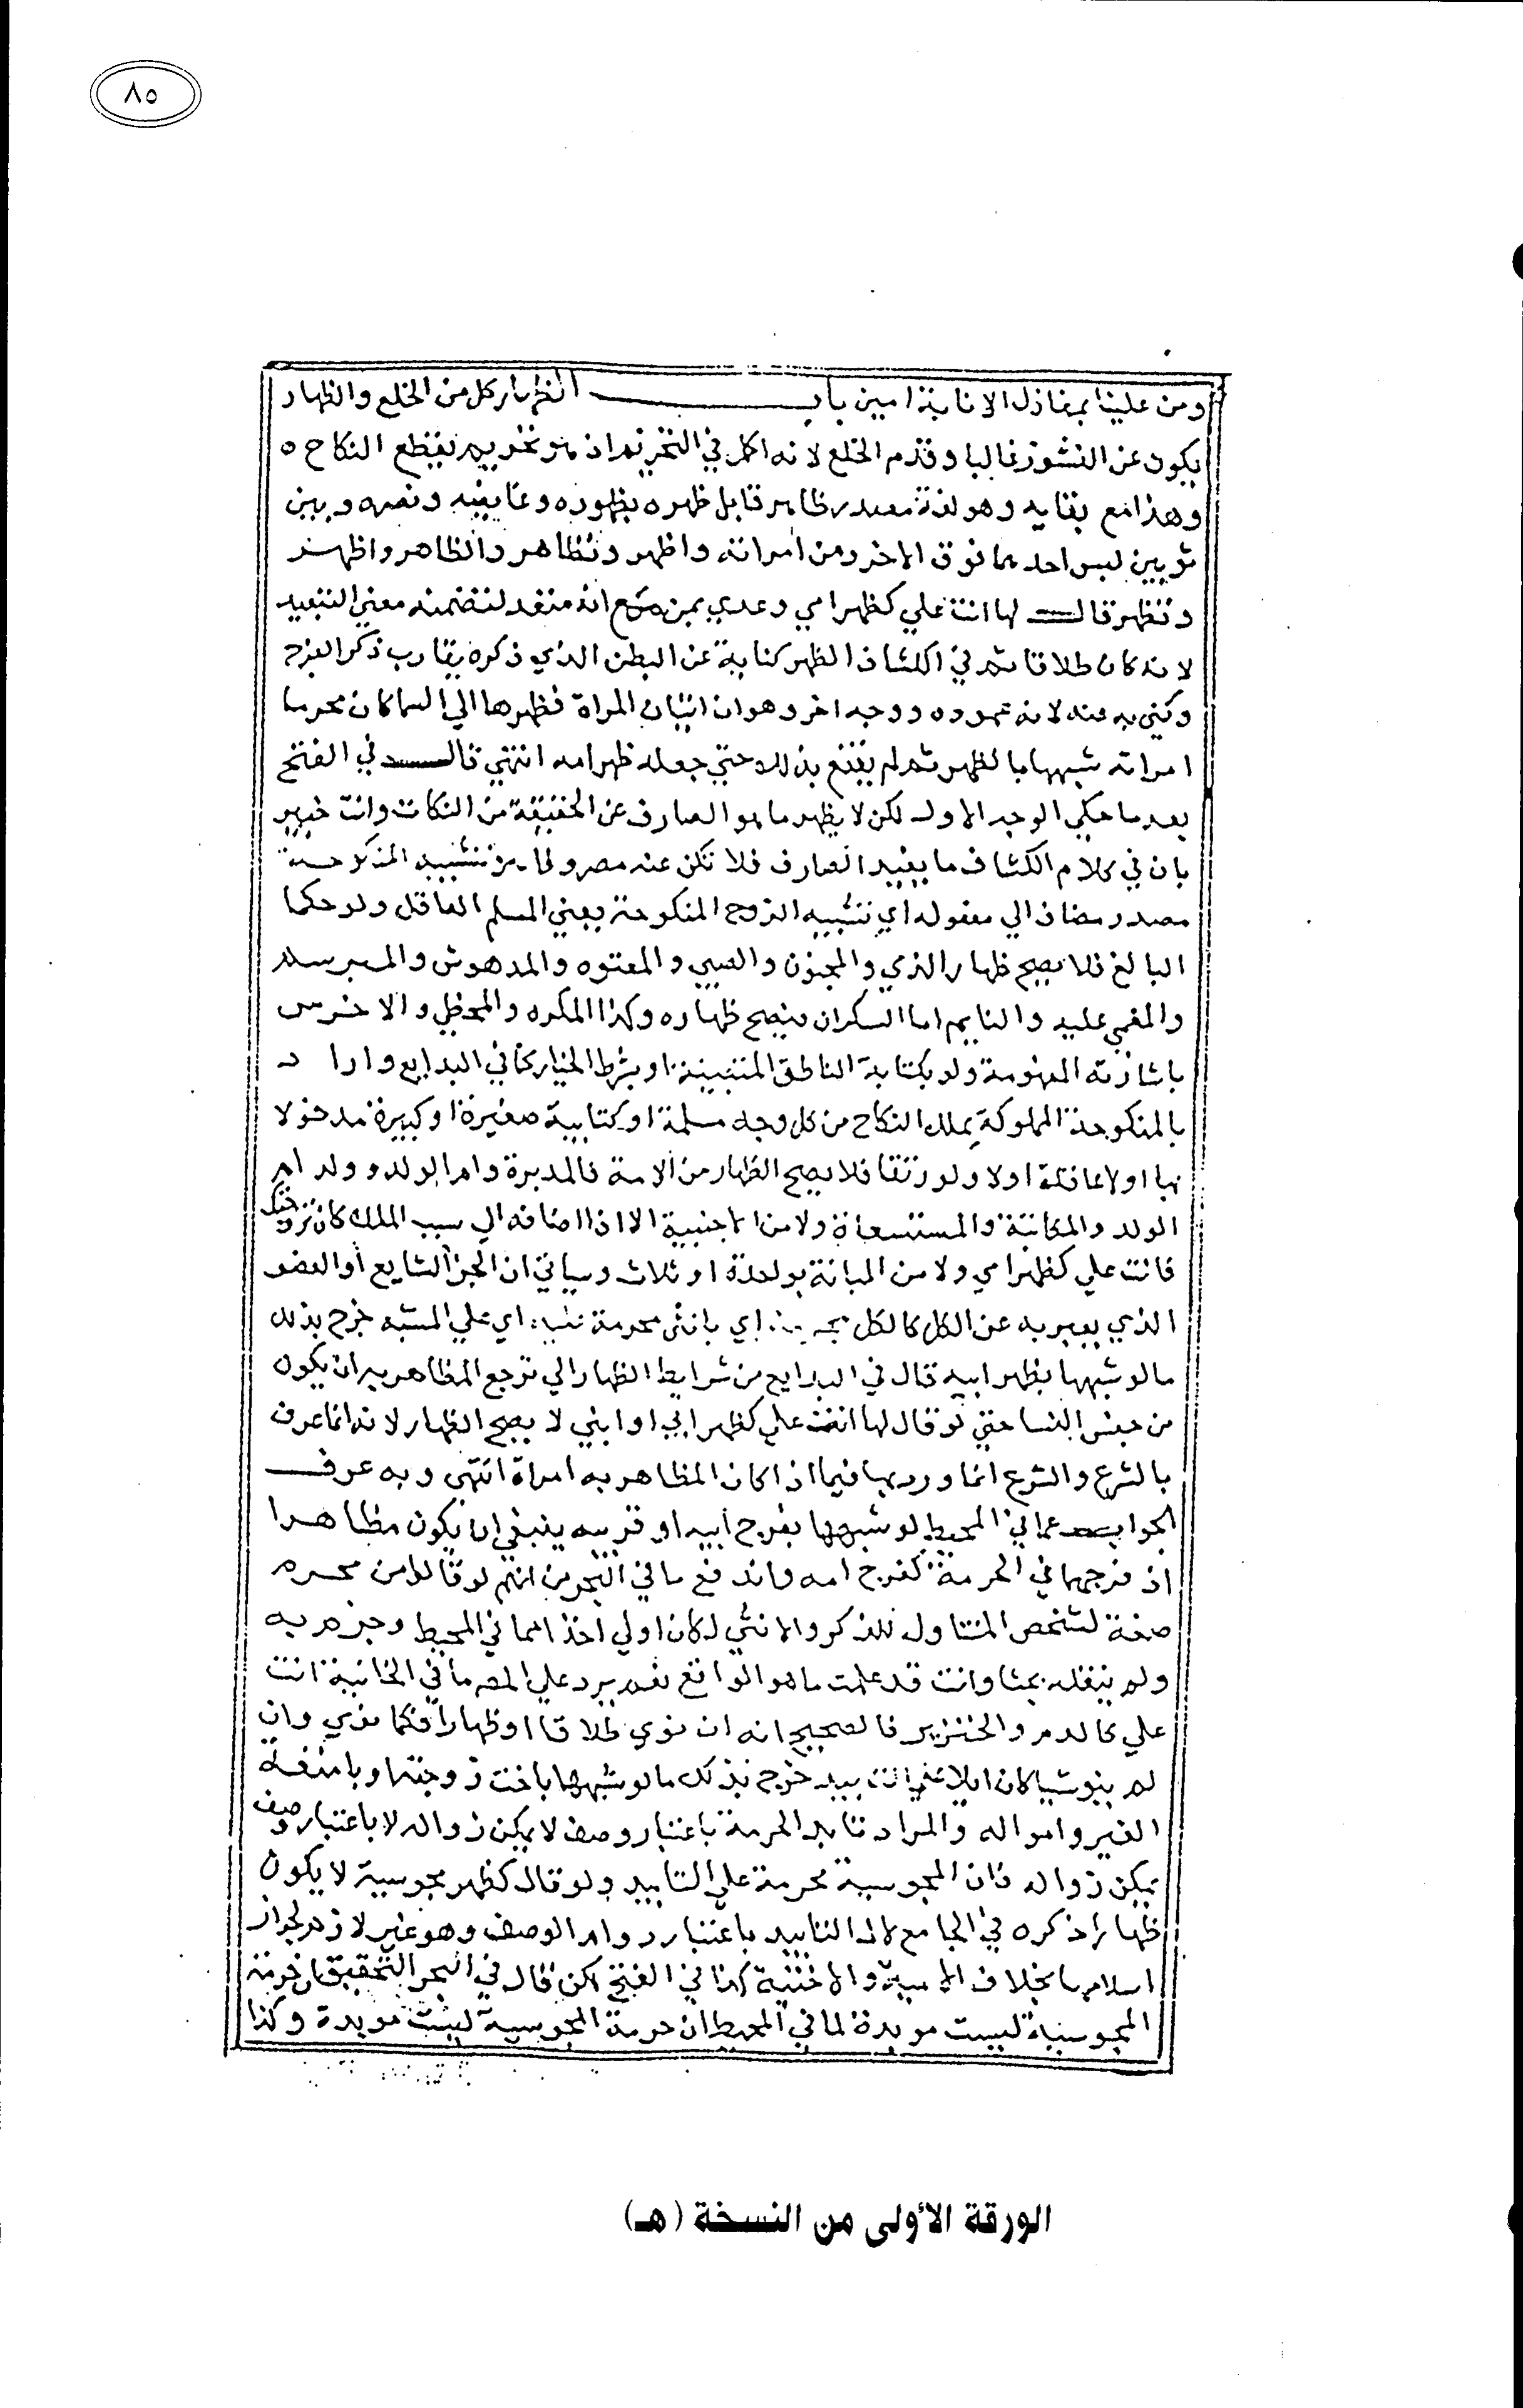 ٨٥
ومن علينا بمنازل الانابة امين باب الظهار كل من الخلع والظهار
يكون عن النشوز غالبا وقدم الخلع لانه اكمل في التحريم اذ هو تحريم بقطع النكاح ه
وهذا مع بقايه وهو لغة مصدر ظاهر قابل ظهره بظهره وعاينه ونصره وبين
ثوبين لبس احدهما فوق الاخر ومن امراته واظهر وتظاهر والظاهر واظهر
وتظهر قال لها انت علي كظهر امي وعدي بمن مع انه متعد لتضمنه معني التبعيد
لانه كان طلاقا ثم في الكشاف الظهر كناية عن البطن الذي ذكره يقارب ذكر الفرج
وكني به عنه لانه عموده ووجه اخر وهو ان اتيان المراة فظهرها الي السما كان محرما
امراته شبهها بالظهر ثم لم يقنع بذلك حتي جعله ظهر امه انتهي قال في الفتح
بعد ما حكي الوجه الاول لكن لا يظهر ما هو الصارف عن الحقيقة من النكات وانت خبير
بان في كلام الكشاف ما يفيد الصارف فلا تكن عنه مصروفا تشبيه المنكوحة
مصدر مضاف الي مفعوله اي تشبيه الزوج المنكوحة يعني المسلم العاقل ولو حكما
البالغ فلا يصح ظهار الذمي والمجنون والصبي والمعتوه والمدهوش والمبرسم
والمغمي عليه والنايم اما السكران فيصح ظهاره وكذا المكره والمخطي والاخرس
باشارته المفهومة ولو بكتابة الناطق المستبينة او بشرط الخيار كما في البدايع واراد
بالمنكوحة المملوكة بملك النكاح من كل وجه مسلمة او كتابية صغيرة او كبيرة مدخولا
بها اولا عاقلة اولا ولو رتقا فلا يصح الظهار من الامة فالمدبرة وام الولد وولد ام
الولد والمكاتبة والمستسعاة ولا من الاجنبية الا اذا اضافه الي سبب الملك كان تزوجتك
فانت علي كظهر امي ولا من المبانة بواحدة او ثلاث وسياتي ان الجزء الشايع او العضو
الذي يعبر به عن الكل كالكل اي بانثي محرمة عليه اي علي المشبه خرج بذلك
ما لو شبهها بظهر ابيه قال في البدايع من شرايط الظهار التي ترجع المظاهر به ان يكون
من جنس النسا حتي لو قال لها انت علي كظهر ابي او ابني لا يصح الظهار لانه انما عرف
بالشرع والشرع انما ورد بها فيما اذا كان المظاهر به امراة انتهي وبه عرف
الجواب عما في المحيط لو شبهها بفرج ابيه او قريبه ينبغي ان يكون مظاهرا
اذ فرجهما في الحرمة كفرج امه واندفع ما في البحر من انهم لو قالوا من محرم
صفة لشخص المتناول للذكر والانثي لكان اولي اخذا مما في المحيط وجزم به
ولم ينقله بحثا وانت قد علمت ما هو الواقع نعم يرد علي المص ما في الخانية انت
علي كالدم والخنزير فالصحيح انه ان نوي طلاقا او ظهارا فكما نوي وان
لم ينو شيا كان ايلا خرج بذلك ما لو شبهها باخت زوجته او بامتعة
الغير وامواله والمراد تابيد الحرمة باعتبار وصف لا يمكن زواله لا باعتبار وصف
يمكن زواله فان المجوسية محرمة علي التابيد ولو قال كظهر مجوسية لا يكون
ظهارا ذكره في الجامع لان التابيد باعتبار دوام الوصف وهو غير لازم لجواز
اسلامها بخلاف الامية والاختية كذا في الفتح لكن قال في البحر التحقيق ان حرمة
المجوسية ليست موبدة لما في المحيط ان حرمة المجوسية ليست موبدة وكذا
الورقة الأولى من النسخة (هـ)